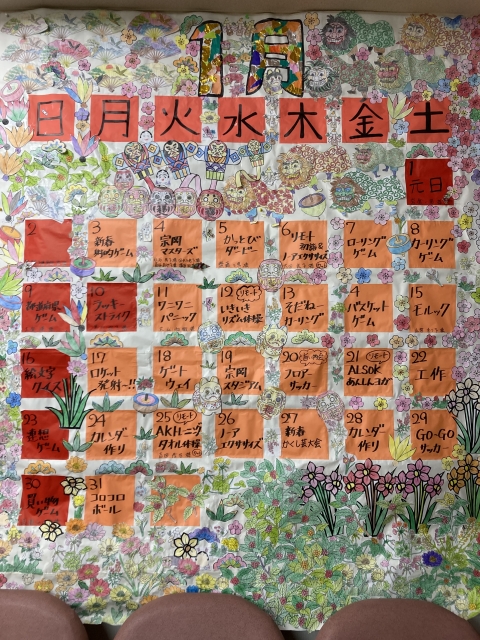 1月
日 月 火 水 木 金 土
1
元日
2
3
新春
ゲーム
4
宗岡
マスターズ
5
かっとび
ダービー
6 リモート
初詣&
ノーアエクササイズ
7
ローリング
ゲーム
8
カーリング
ゲーム
9
都道府県
ゲーム
10
ラッキー
ストライク
11
ワニワニ
パニック
12 リモート
いきいき
リズム体操
13
そだねー
カーリング
14
バスケット
ゲーム
15
モルック
16
絵文字
クイズ
17
ロケット
発射!!
18
ゲート
ウェイ
19
宗岡
スタジアム
20
フロアー
サッカー
21 リモート
ALSOK
あんしんヨガ
22
工作
23
連想
ゲーム
24
カレンダー
作り
25 リモート
AKトレーニング
タオル体操
26
ノーア
エクササイズ
27
新春
かくし芸大会
28
カレンダー
作り
29
GO-GO
サッカー
30
買い物
ゲーム
31
コロコロ
ボール